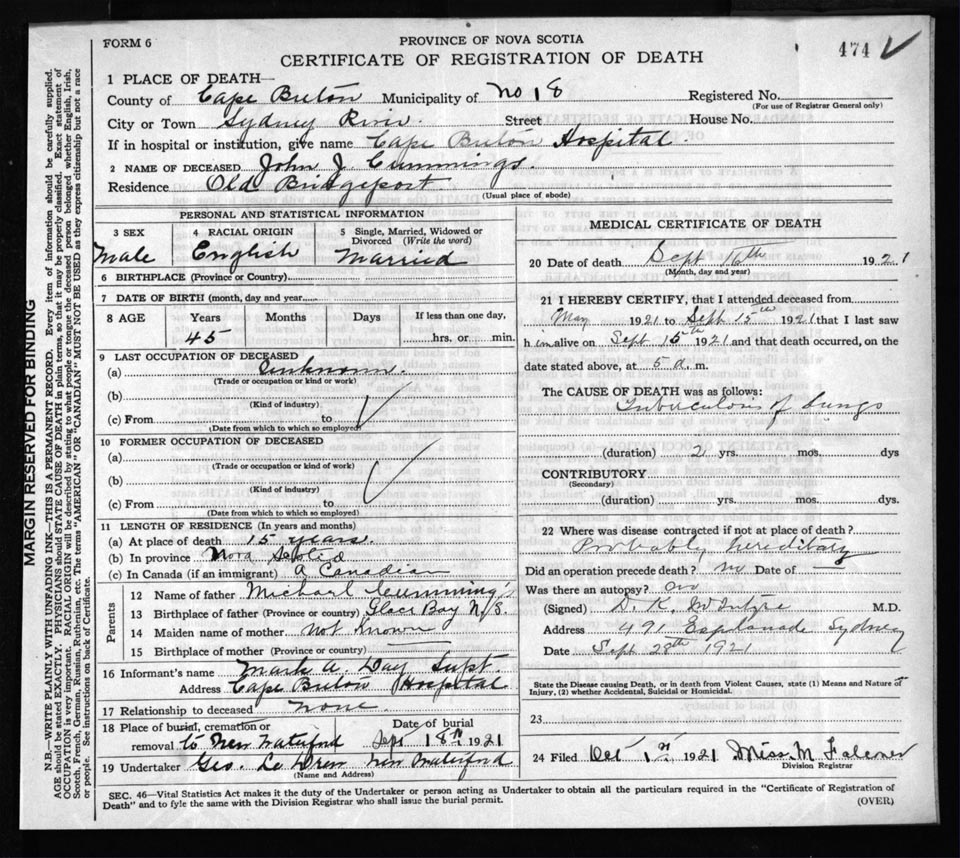 FORM 6
PROVINCE OF NOVA SCOTIA
474
CERTIFICATE OF REGISTRATION OF DEATH
1 PLACE OF DEATH—
County of Cape Breton Municipality of No 18 Registered No.
(For use of Registrar General only)
City or Town Sydney River. Street House No.
If in hospital or institution, give name Cape Breton Hospital.
2 NAME OF DECEASED John J. Cummings.
Residence Old Bridgeport.
(Usual place of abode)
PERSONAL AND STATISTICAL INFORMATION
3 SEX 4 RACIAL ORIGIN 5 Single, Married, Widowed or Divorced (Write the word)
Male English Married
6 BIRTHPLACE (Province or Country)
7 DATE OF BIRTH (month, day and year
8 AGE Years Months Days If less than one day,
45 hrs. or min.
9 LAST OCCUPATION OF DECEASED
(a) Unknown.
(Trade or occupation or kind or work)
(b)
(Kind of industry)
(c) From to
(Date from which to which so employed
10 FORMER OCCUPATION OF DECEASED
(a)
(Trade or occupation or kind of work)
(b)
(Kind of industry)
(c) From to
(Date from which to which so employed)
11 LENGTH OF RESIDENCE (In years and months)
(a) At place of death 15 years.
(b) In province Nova Scotia
(c) In Canada (if an immigrant) a Canadian
Parents
12 Name of father Michael Cumming's
13 Birthplace of father (Province or country) Glace Bay N/S.
14 Maiden name of mother not known
15 Birthplace of mother (Province or country)
16 Informant's name Mark A. Day Supt.
Address Cape Breton Hospital
17 Relationship to deceased none
18 Place of burial, cremation or Date of burial
removal to New Waterford Sept 18th 1921
19 Undertaker Geo. Le Drew New Waterford
(Name and Address)
MEDICAL CERTIFICATE OF DEATH
20 Date of death Sept 16th 1921
(Month, day and year)
21 I HEREBY CERTIFY, that I attended deceased from
May 1921 to Sept 15th 1921 that I last saw
h im alive on Sept 15th 1921 and that death occurred, on the
date stated above, at 5 a. m.
The CAUSE OF DEATH was as follows:
Tuberculous of Lungs
(duration) 2 yrs. mos. dys
CONTRIBUTORY
(Secondary)
(duration) yrs. mos. dys.
22 Where was disease contracted if not at place of death?
Probably hereditary
Did an operation precede death? no Date of —
Was there an autopsy? no
(Signed) D. K. McIntyre M.D.
Address 491 Esplanade Sydney
Date Sept 28th 1921
State the Disease causing Death, or in death from Violent Causes, state (1) Means and Nature of
Injury, (2) whether Accidental, Suicidal or Homicidal.
23
24 Filed Oct 1st 1921 Miss M Falconer
Division Registrar
SEC. 46—Vital Statistics Act makes it the duty of the Undertaker or person acting as Undertaker to obtain all the particulars required in the "Certificate of Registration of
Death" and to fyle the same with the Division Registrar who shall issue the burial permit.
(OVER)
MARGIN RESERVED FOR BINDING
N.B.—WRITE PLAINLY WITH UNFADING INK—THIS IS A PERMANENT RECORD. Every item of information should be carefully supplied.
AGE should be stated EXACTLY. PHYSICIANS should STATE CAUSE OF DEATH in plain terms, so that it may be properly classified. Exact statement of
OCCUPATION is very important. RACIAL ORIGIN will be described by stating to what people or tongue the deceased person belonged whether English, Irish,
Scotch, French, German, Russian, Ruthenian, etc. The terms "AMERICAN" OR "CANADIAN" MUST NOT BE USED as they express citizenship but not a race
or people. See instructions on back of Certificate.